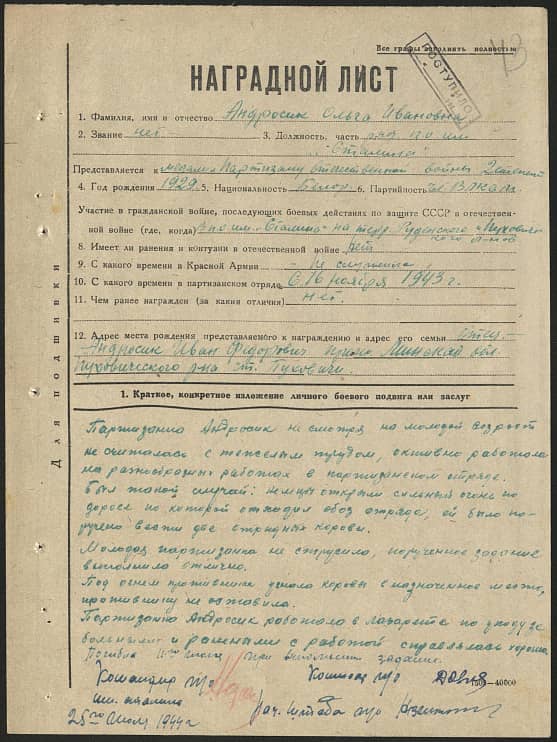 Все графы заполнить полностью
43
ПОСТУПИЛО
НАГРАДНОЙ ЛИСТ
1. Фамилия, имя и отчество Андросик Ольга Ивановна
2. Звание нет 3. Должность, часть п/о им
"Сталина"
Представляется к медали Партизану отечественной войны 2 степени
4. Год рождения 1929 5. Национальность Белор 6. Партийность чл ВЛКСМ
Участие в гражданской войне, последующих боевых действиях по защите СССР в отечествен-
ной войне (где, когда) В п/о им. "Сталина" на терр. Руденского и Пухович
кого р-нов
8. Имеет ли ранения и контузии в отечественной войне Нет
9. С какого времени в Красной Армии Не служила
10. С какого времени в партизанском отряде С 16 ноября 1943 г.
11. Чем ранее награжден (за какия отличия) нет.
12. Адрес места рождения представляемого к награждению и адрес его семьи отец-
Андросик Иван Фёдорович прож. Минская обл.
Пуховического р-на ст. Пуховичи.
Для подшивки
1. Краткое, конкретное изложение личного боевого подвига или заслуг
Партизанка Андросик не смотря на молодой возраст
не считалась с тяжелым трудом, активно работала
на разнообразных работах в партизанском отряде.
Был такой случай: немцы открыли сильный огонь по
дороге по которой отходил обоз отряда, ей было по-
ручено вести две отрядных коровы.
Молодая партизанка не струсила, порученное задание
выполнила отлично.
Под огнем противника угнала коровы в назначенное место,
противнику не оставила.
Партизанка Андросик работала в лазарете по уходу за
больными и ранеными с работой справлялась хорошо.
Погибла при выполнении задания.
Командир п/о Комиссар п/о
им. Сталина Нач. штаба п/о
25го Июля 1944 г.
1504—40000